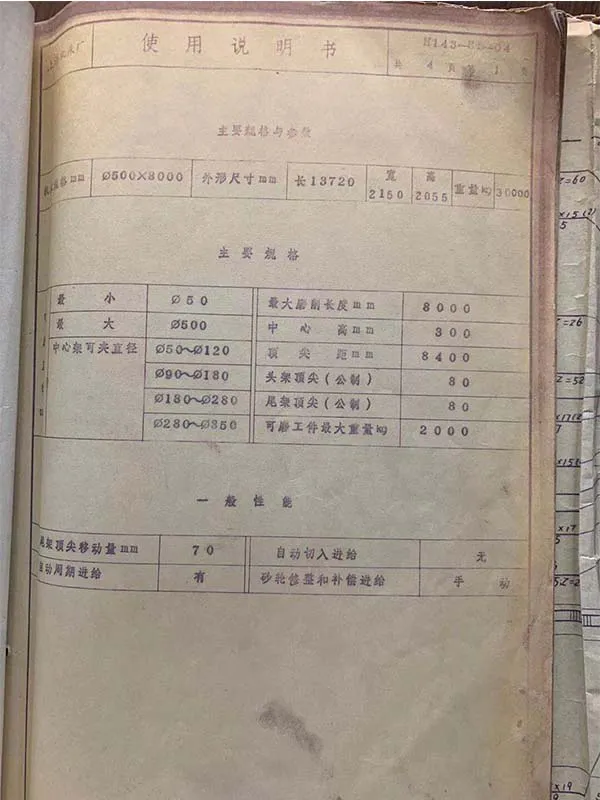 使用说明书
H143-82-04
共 4 页 第 1 页
主要规格与参数
规格mm Ø500×8000 外形尺寸mm 长13720 宽 2150 高 2055 重量kg 30000
主要规格
最小 Ø50 最大磨削长度mm 8000
最大 Ø500 中心高mm 300
中心架可夹直径 Ø50~Ø120 顶尖距mm 8400
Ø90~Ø180 头架顶尖(公制) 80
Ø180~Ø280 尾架顶尖(公制) 80
Ø280~Ø350 可磨工件最大重量kg 2000
一般性能
尾架顶尖移动量mm 70 自动切入进给 无
自动周期进给 有 砂轮修整和补偿进给 手动